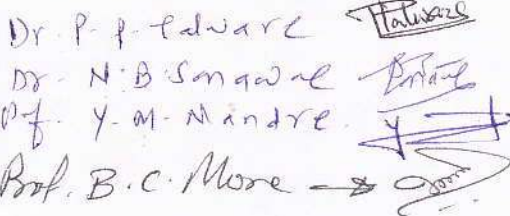 Dr. P. P. Talware Talware
Dr. N. B. Sonawane
Pf. Y. M. Mandre.
Prof. B. C. More